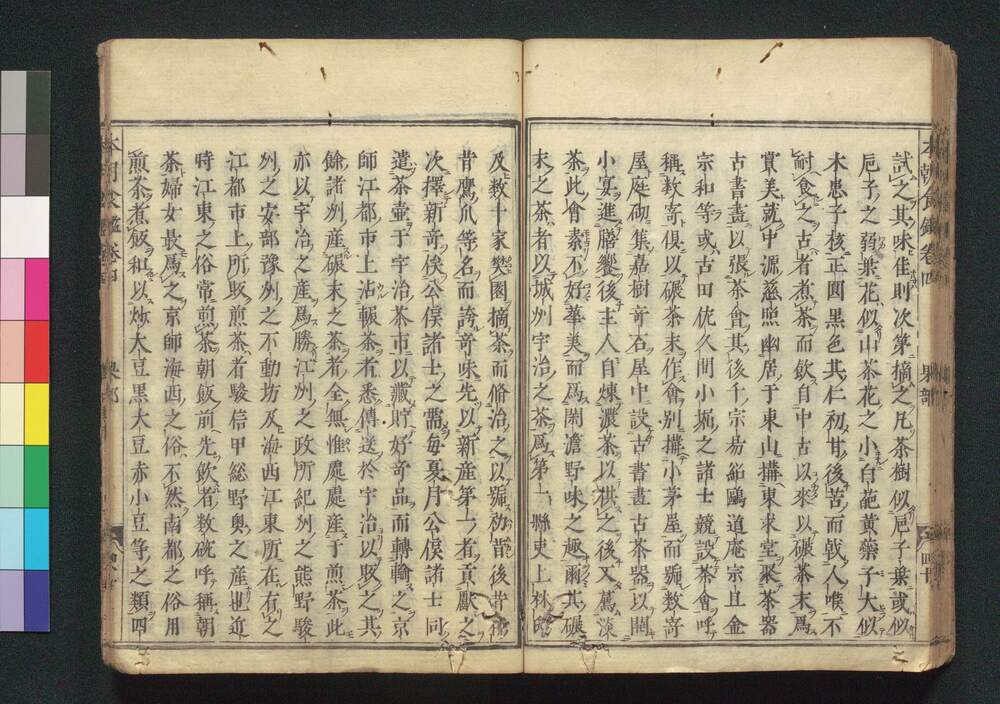 本朝食鑑卷四 果部 四十
試之其味佳則次第摘之凡茶樹似巵子葉或似
巵子之弱葉花似山茶花之小白葩黄蘂子大似
木患子核正圓黒色其仁初甘後苦而戟人喉不
耐食之古者煮茶而飲自中古以來以碾茶末爲
賞美就中源慈照幽居于東山搆東求堂聚茶器
古書畫以張茶會其後千宗易紹鷗道庵宗旦金
宗和等或古田佐久間小堀之諸士競設茶會呼
稱數寄倶以碾茶末作會別搆小茅屋而號數寄
屋庭砌集嘉樹奇石屋中設古書畫古茶器以開
小宴進膳饗後主人自煉濃茶以供之後又薦薄
茶此會素不好華美而爲閑澹野味之趣爾其碾
末之茶者以城州宇治之茶爲第一縣吏上林
及數十家樊園摘茶而脩治之以號初昔後昔
昔鷹爪等名而誇奇味先以新産第一者貢獻之
次擇新奇俟公侯諸士之需毎夏月公侯諸士同
遣茶壷于宇治茶市以藏貯好奇品而轉輸之京
師江都市上沽碾茶者悉傳送於宇治以販之其
餘諸州産碾末之茶者全無惟處處産于煎茶此
亦以宇治之産爲勝江州之政所紀州之熊野駿
州之安部豫州之不動坊及海西江東所在有之
江都市上所販煎茶者駿信甲総野奥之産也近
時江東之俗常煎茶朝飯前先飲者數碗呼稱朝
茶婦女最爲之京師海西之俗不然南都之俗用
煎茶煮飯和以炒大豆黒大豆赤小豆等之類四
本朝食鑑卷四 果部